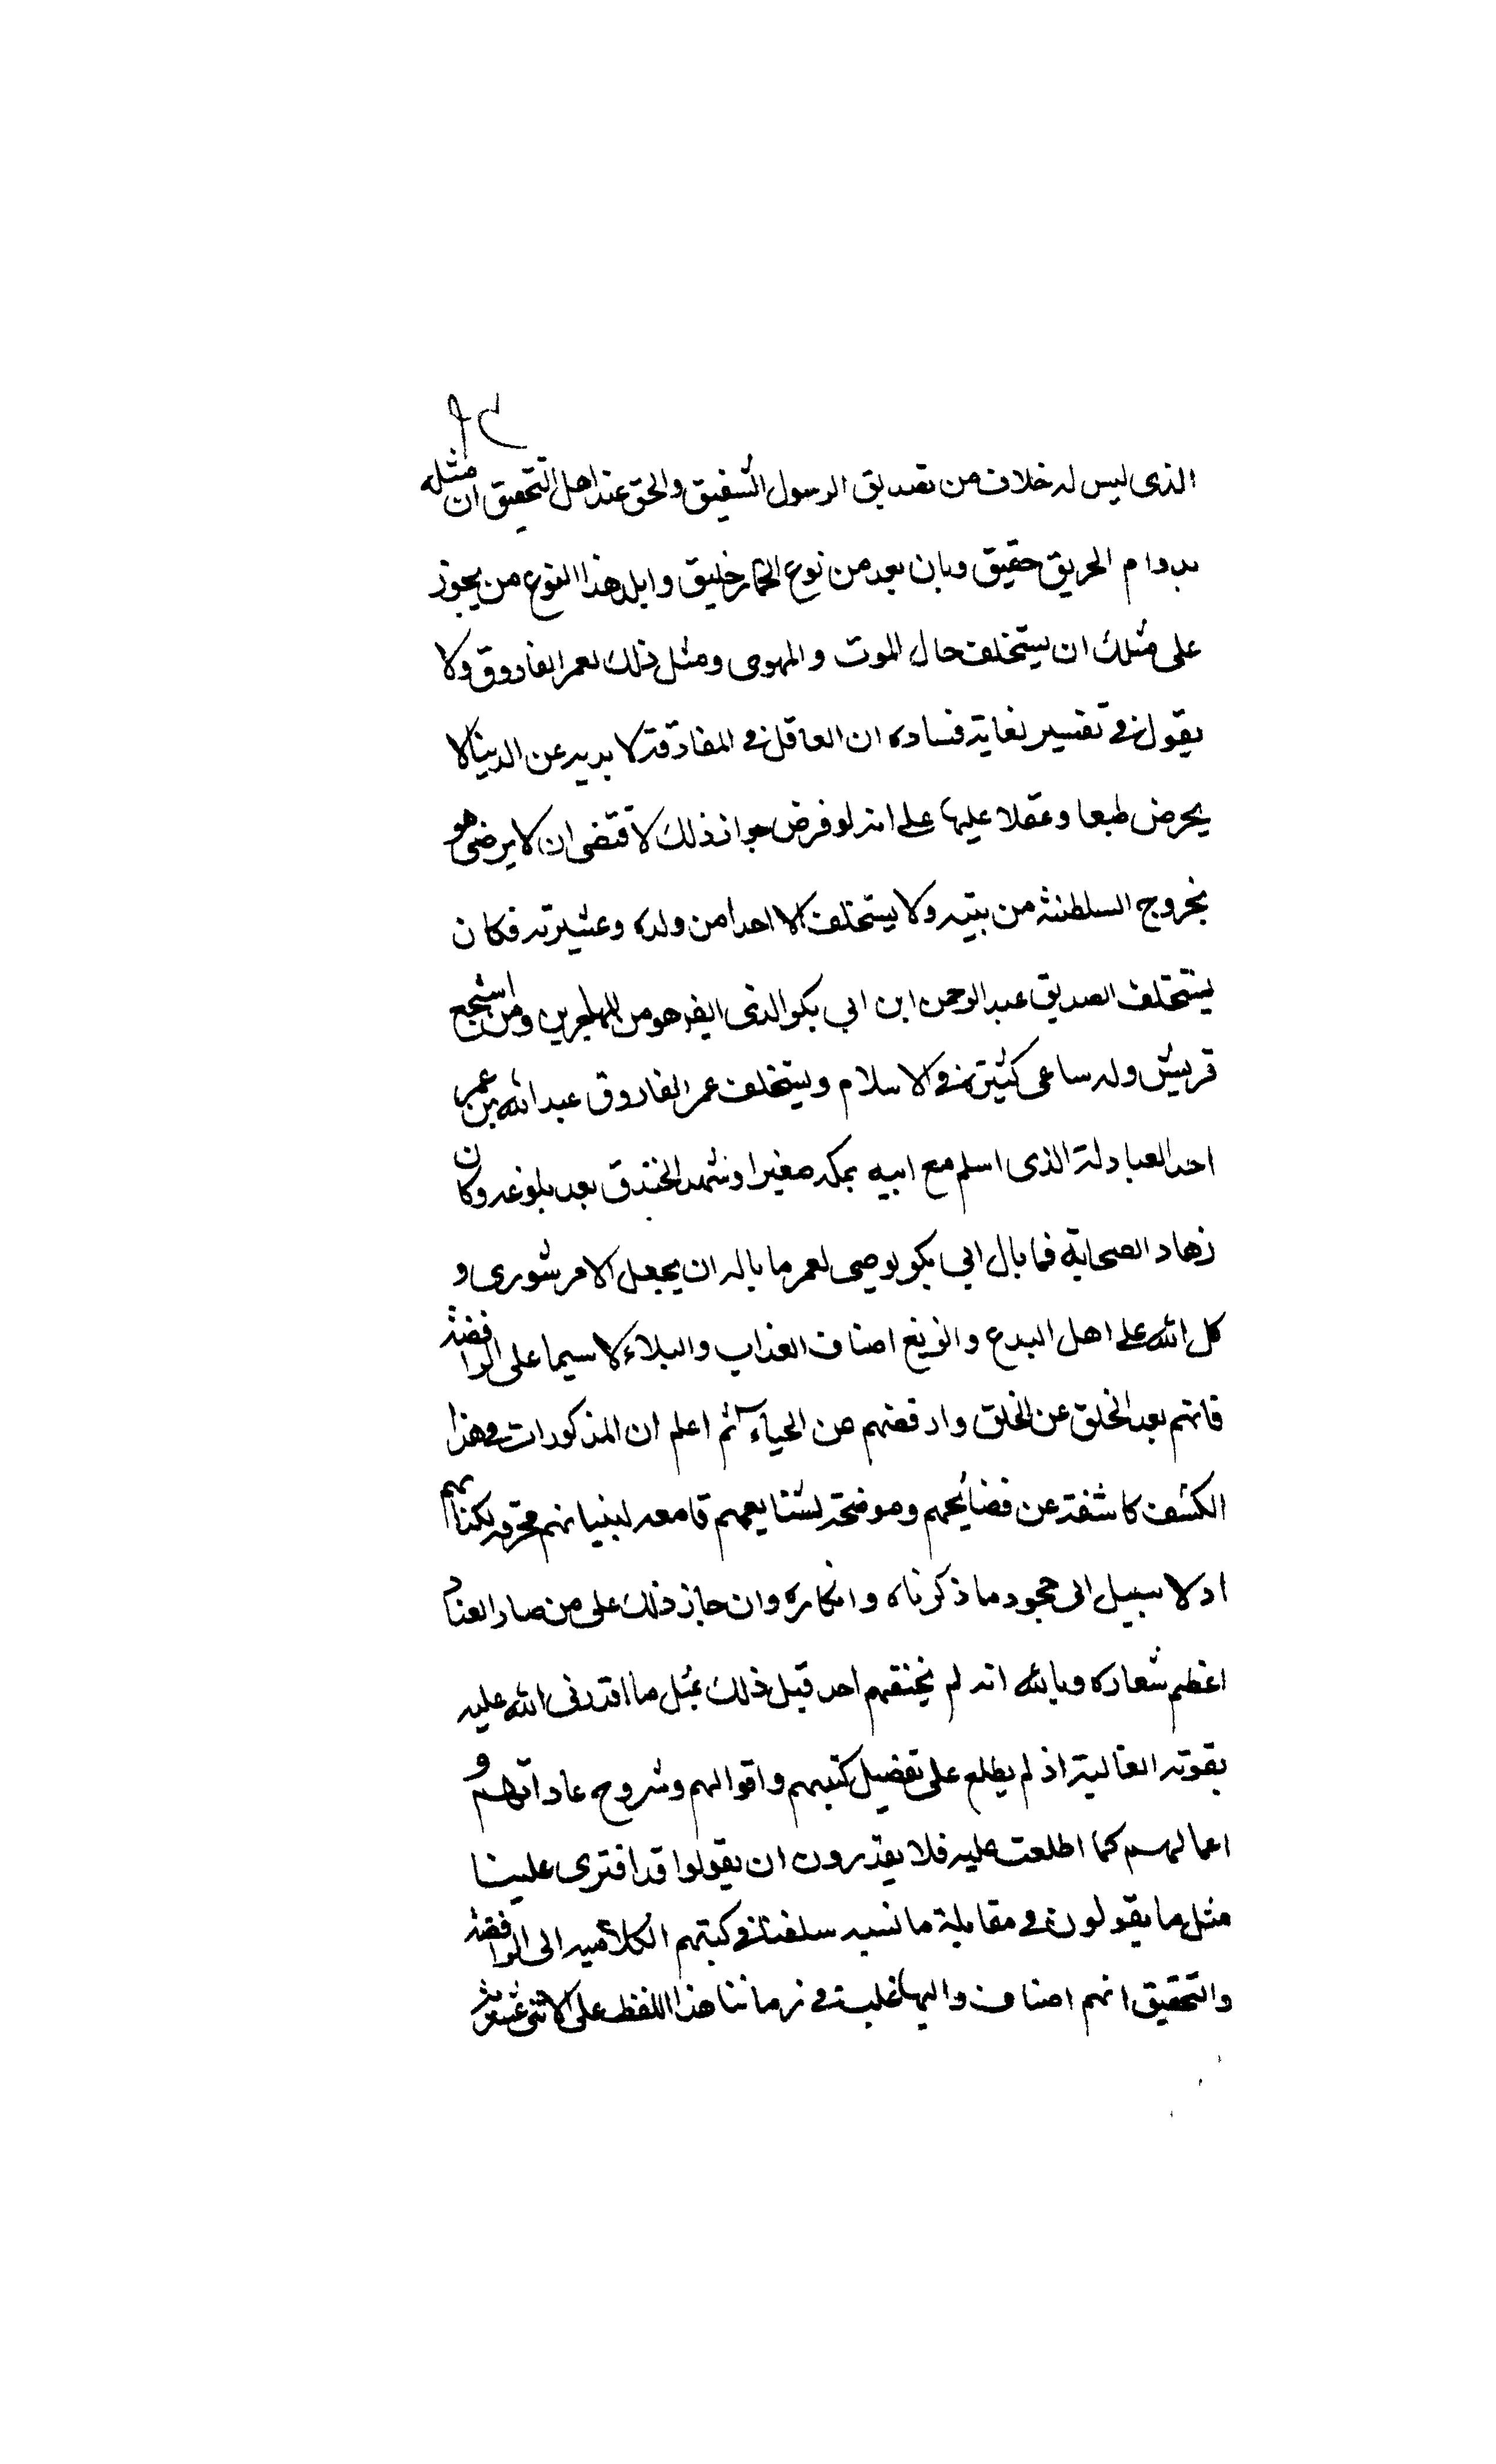 الذى ليس له خلاف من تصديق الرسول الشفيق والحق عند اهل التحقيق ان مثله
بدوام الحريق حقيق وبان يعد من نوع الحمار خليق وابلد هذا النوع من يجوز
على مثلك ان يستخلف حال الموت والهوى ومثل ذلك لعمر الفاروق ولا
يقول فى تفسير لغاية فساده ان العاقل فى المفارقة لا بدية عن الدنيا لا
يحرص طبعا وعقلا عليها على انه لو فرض جواز ذلك لاقتضى ان لا يرضى هو
بخروج السلطنة من بيته ولا يستخلف الا احدا من ولده وعشيرته فكان
يستخلف الصديق عبد الرحمن ابن ابي بكر الذى ايضا هو من المهاجرين ومن اشجع
قريش وله ساعى كثيرة فى الاسلام ويستخلف عمر الفاروق عبد الله بن عمر
احد العبادلة الذى اسلم مع ابيه بمكة صغيرا وشهد الخندق بعد بلوغه وكان
زهاد الصحابة فما بال ابي بكر يوصى لعمر ما باله ان يجعل الامر شورى و
كل الله على اهل البدع والزيغ اصناف العذاب والبلاء لا سيما على الرافضة
فانهم بعد الخلق عن الخلق وارفضهم عن الحياء ثم اعلم ان المذكورات فى هذا
الكشف كاشفة عن فضائحهم وموضحة لشنايعهم قامعه لبنيانهم محرقه لكنانهم
اذ لا سبيل الى جحود ما ذكرناه وانكاره وان جاز ذلك على من صار العناد
اعظم شعاره وبالله انه لم يخنقهم احد قبل ذلك بمثل ما اقدرنى الله عليه
بقوته الغالية اذ لم يطلع على تفضيل كتبهم واقوالهم وشروح عاداتهم و
اعمالهم كما اطلعت عليه فلا يقدرون ان يقولوا قد افترى علينا
مثل ما يقولون فى مقابلة ما نسبه سلفنا فى كتبهم الكلامية الى الرافضة
والتحقيق انهم اصناف واليها غلبت فى زماننا هذا اللفظ على الاثنى عشرية